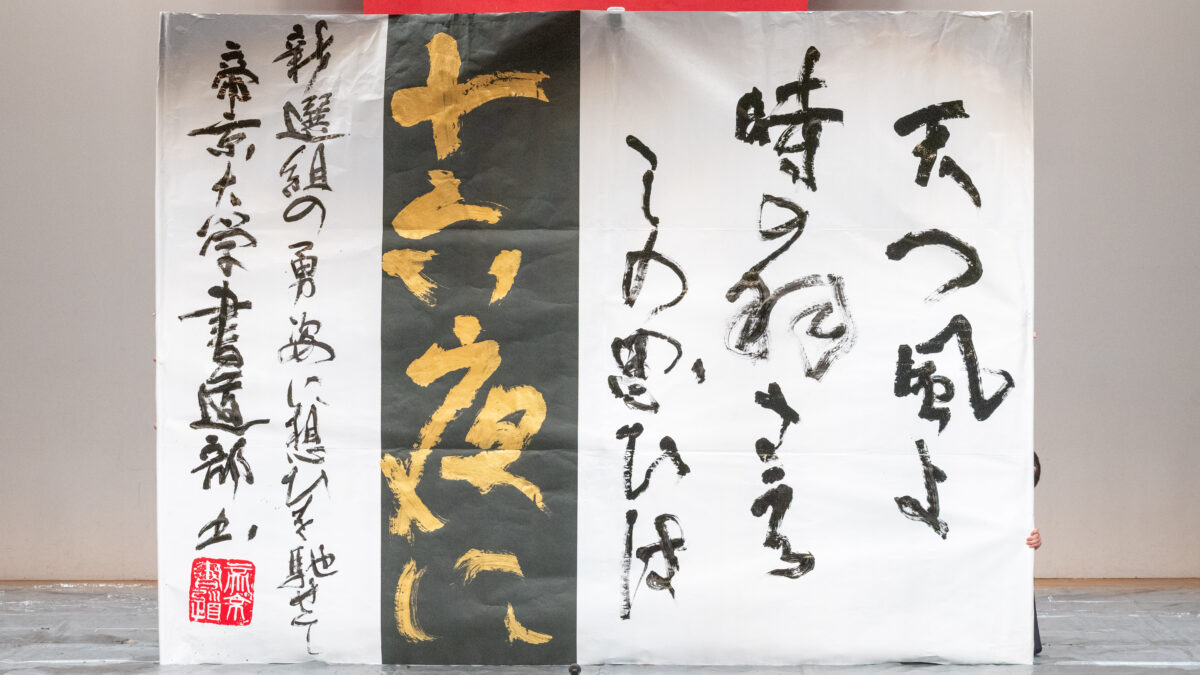 天つ風よ
時の羽さえ
この思ひは
十六夜に
新選組の勇姿に想ひを馳せて
帝京大学書道部 書